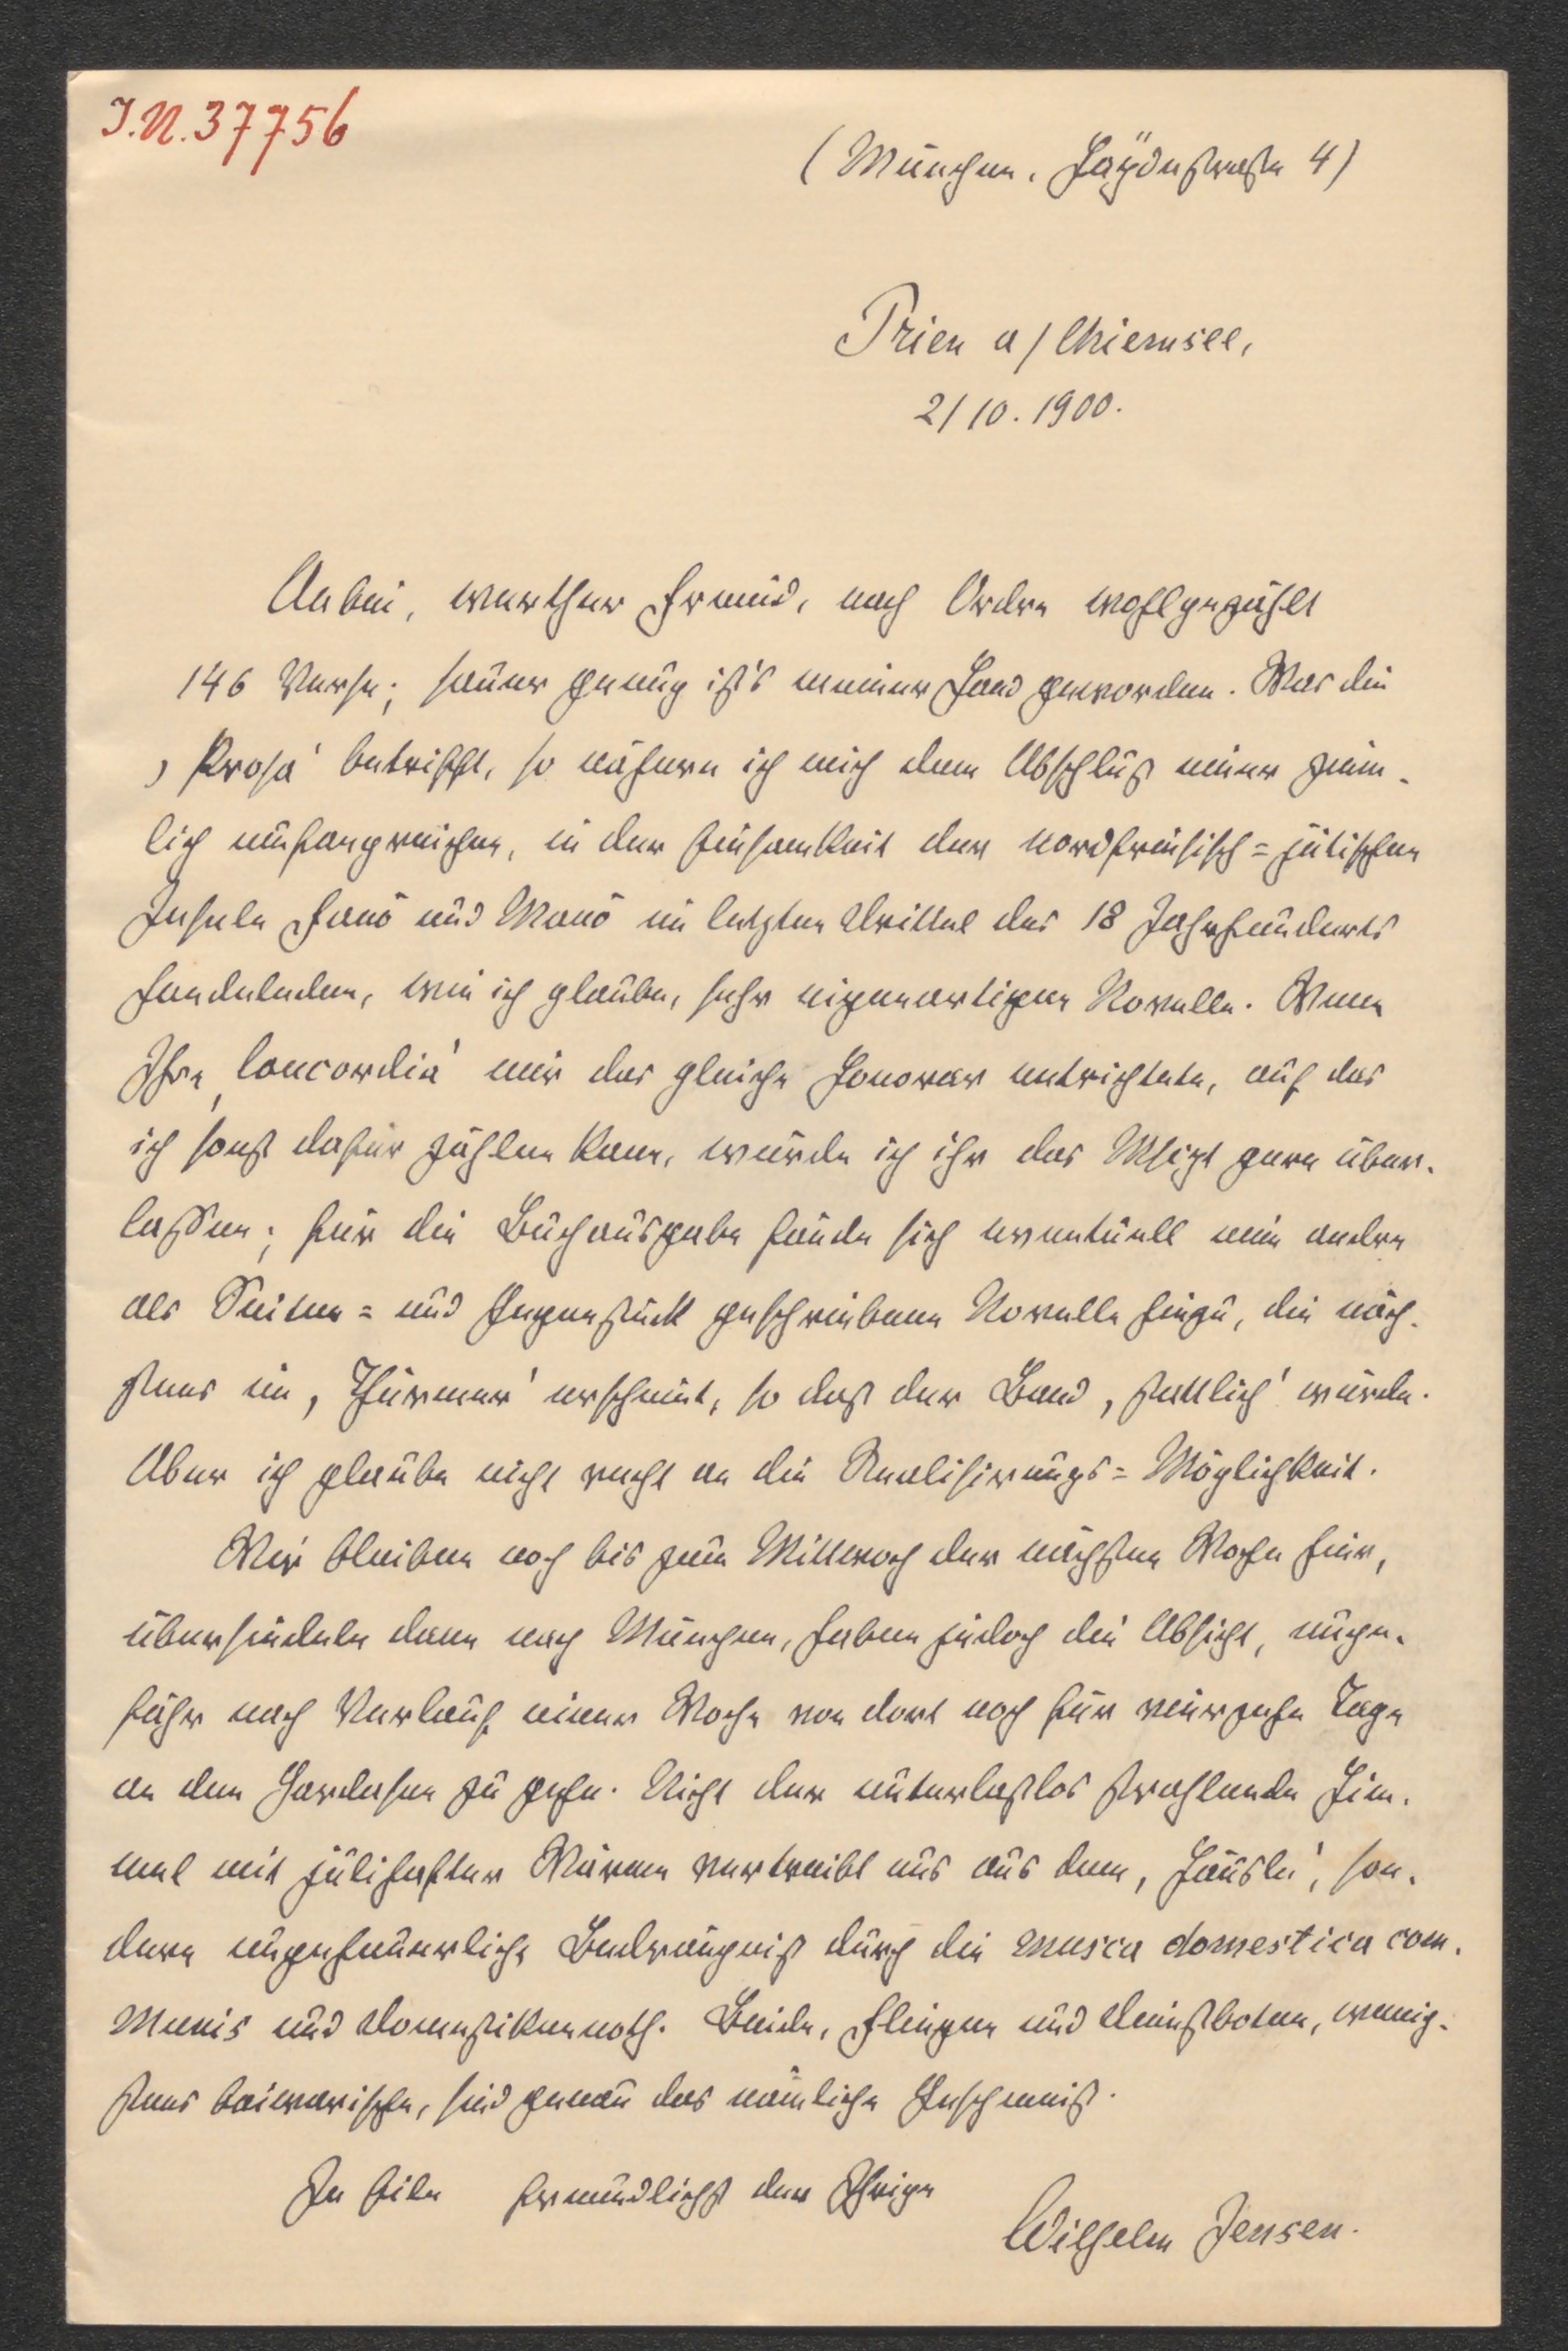 J.N. 37756
(München, Haydnstraße 4)
Prien a/Chiemsee,
2/10. 1900.
Anbei, werther Freund, nach Ordre wohlgezählt
146 Verse; sauer genug ist's meiner Hand geworden. Was die
‚Prosa' betrifft, so nähere ich mich dem Abschluß einer ziem-
lich umfangreichen, in der Einsamkeit der nordfriesisch=jütischen
Inseln Fanö und Manö im letzten Drittel des 18 Jahrhunderts
handelnden, wie ich glaube, sehr eigenartigen Novelle. Wenn
Ihre ‚Concordia' mir das gleiche Honorar entrichtete, auf das
ich sonst dafür zählen kann, würde ich ihr das Mscpt gern über-
lassen; für die Buchausgabe fände sich eventuell eine andre
als Seiten= und Gegenstück geschriebene Novelle hinzu, die näch-
stens im ‚Thürmer' erscheint, so daß der Band ‚stattlich' würde.
Aber ich glaube nicht recht an die Realisirungs=Möglichkeit.
Wir bleiben noch bis zum Mittwoch der nächsten Woche hier,
übersiedeln dann nach München, haben jedoch die Absicht, unge-
fähr nach Verlauf einer Woche von dort noch für vierzehn Tage
an den Gardasee zu gehn. Nicht der unterlaßlos strahlende Him-
mel mit julihafter Wärme vertreibt uns aus dem ‚Häusle', son-
dern ungeheuerliche Bedrängniß durch die musca domestica com-
munis und Domestikennoth. Beide, Fliegen und Dienstboten, wenig-
stens baierarische, sind genau das nämliche Geschmeiß.
In Eile freundlichst der Ihrige
Wilhelm Jensen.